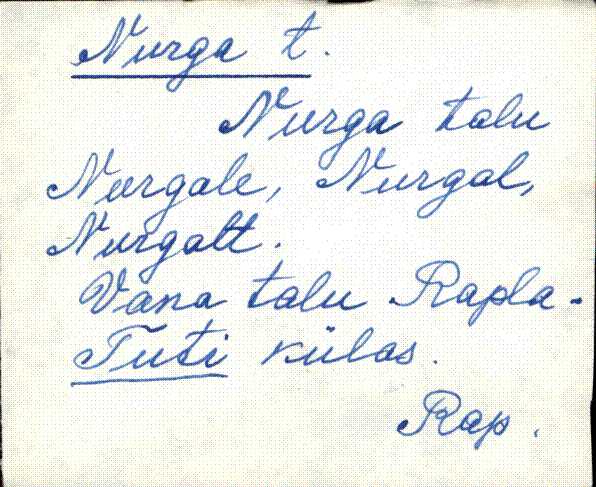 Nurga t.
Nurga talu
Nurgale, Nurgal,
Nurgalt.
Vana talu Rapla-
Tuti külas.
Rap.